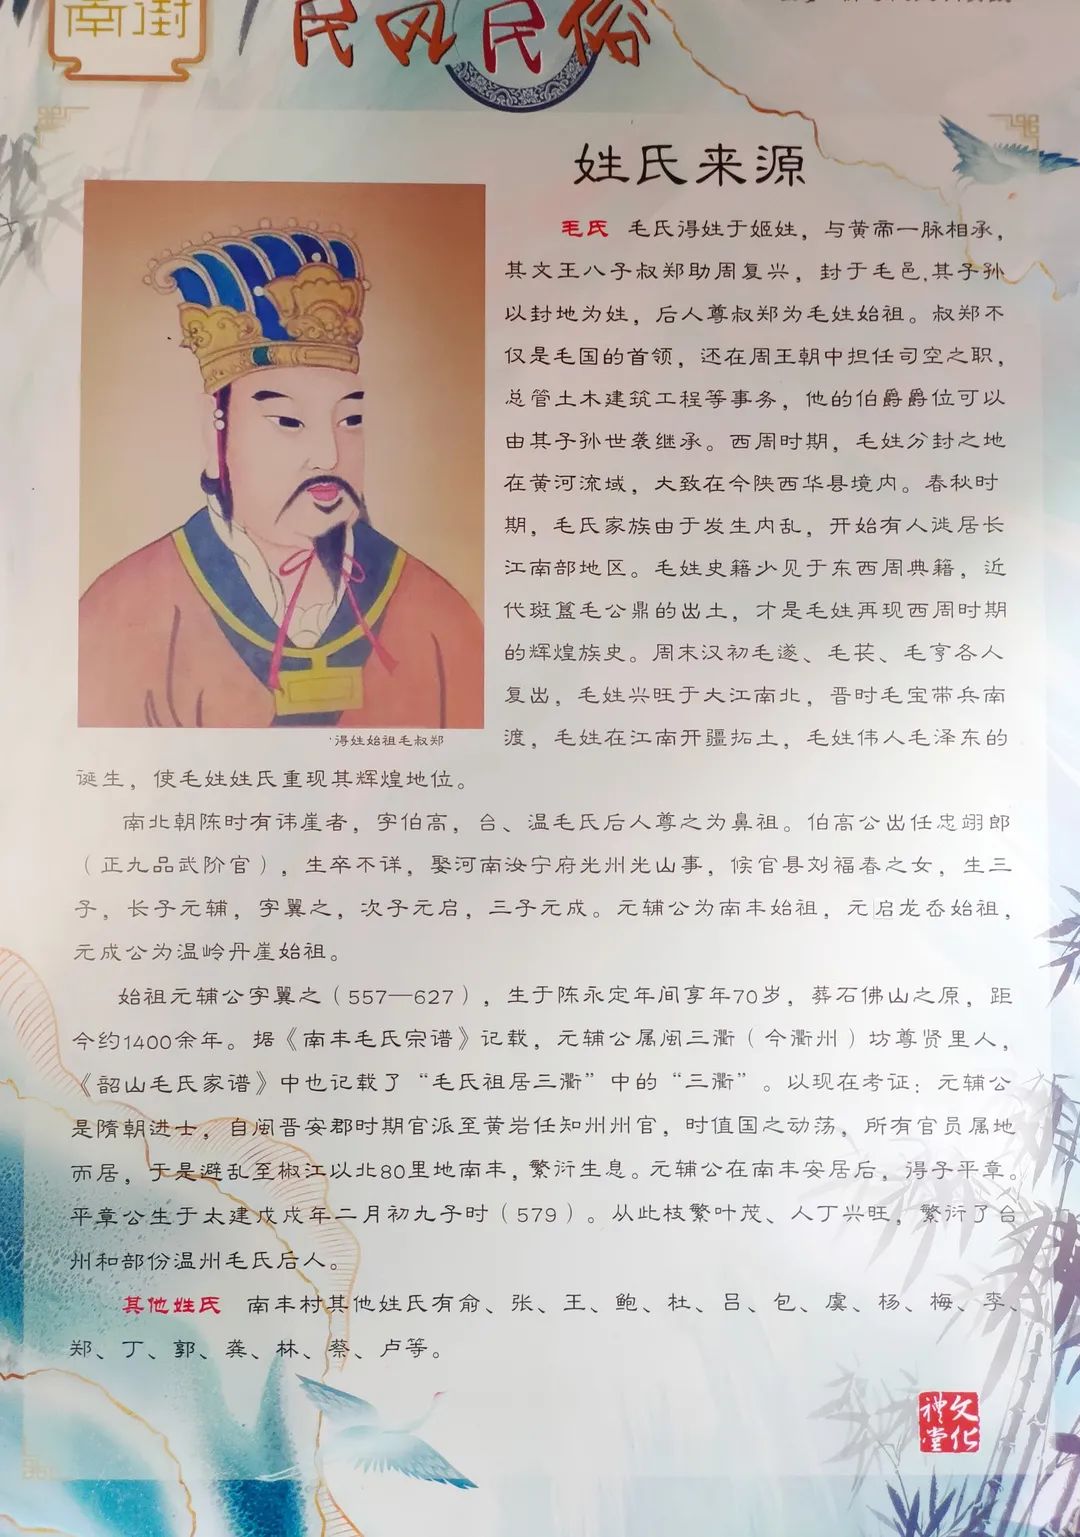 南街
民风民俗
姓氏来源
毛氏 毛氏得姓于姬姓，与黄帝一脉相承，
其文王八子叔郑助周复兴，封于毛邑.其子孙
以封地为姓，后人尊叔郑为毛姓始祖。叔郑不
仅是毛国的首领，还在周王朝中担任司空之职，
总管土木建筑工程等事务，他的伯爵爵位可以
由其子孙世袭继承。西周时期，毛姓分封之地
在黄河流域，大致在今陕西华县境内。春秋时
期，毛氏家族由于发生内乱，开始有人逃居长
江南部地区。毛姓史籍少见于东西周典籍，近
代班簋毛公鼎的出土，才是毛姓再现西周时期
的辉煌族史。周末汉初毛遂、毛苌、毛亨各人
复出，毛姓兴旺于大江南北，晋时毛宝带兵南
渡，毛姓在江南开疆拓土，毛姓伟人毛泽东的
得姓始祖毛叔郑
诞生，使毛姓姓氏重现其辉煌地位。
南北朝陈时有讳崖者，字伯高，台、温毛氏后人尊之为鼻祖。伯高公出任忠翊郎
（正九品武阶官），生卒不详，娶河南汝宁府光州光山事，候官县刘福春之女，生三
子，长子元辅，字翼之，次子元启，三子元成。元辅公为南丰始祖，元启龙岙始祖，
元成公为温岭丹崖始祖。
始祖元辅公字翼之（557—627），生于陈永定年间享年70岁，葬石佛山之原，距
今约1400余年。据《南丰毛氏宗谱》记载，元辅公属闽三衢（今衢州）坊尊贤里人，
《韶山毛氏家谱》中也记载了“毛氏祖居三衢”中的“三衢”。以现在考证：元辅公
是隋朝进士，自闽晋安郡时期官派至黄岩任知州州官，时值国之动荡，所有官员属地
而居，于是避乱至椒江以北80里地南丰，繁衍生息。元辅公在南丰安居后，得子平章。
平章公生于太建戊戌年二月初九子时（579）。从此枝繁叶茂、人丁兴旺，繁衍了台
州和部份温州毛氏后人。
其他姓氏 南丰村其他姓氏有俞、张、王、鲍、杜、吕、包、虞、杨、梅、李、
郑、丁、郭、龚、林、蔡、卢等。
文化
禮堂